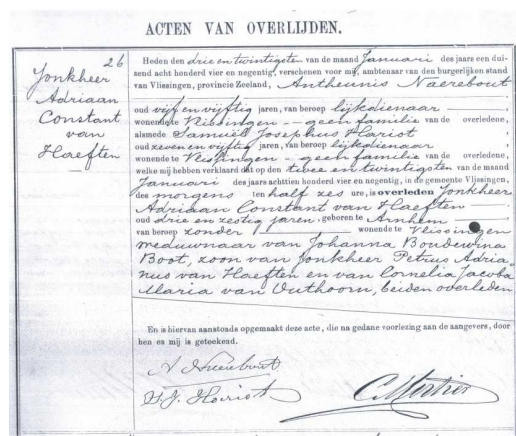 ACTEN VAN OVERLIJDEN.
26
Jonkheer
Adriaan
Constant
van
Haeften
Heden den drie en twintigsten van de maand Januari des jaars een dui-
zend acht honderd vier en negentig, verschenen voor mij, ambtenaar van den burgerlijken stand
van Vlissingen, provincie Zeeland, Antheunis Naerebout
oud vijf en vijftig jaren, van beroep lijkdienaar
wonende te Vlissingen - geen familie van de overledene,
alsmede Samuël Josephus Hariot
oud zeven en vijftig jaren, van beroep lijkdienaar
wonende te Vlissingen - geen familie van de overledene,
welke mij hebben verklaard dat op den twee en twintigsten van de maand
Januari des jaars achttien honderd vier en negentig, in de gemeente Vlissingen,
des morgens ten half zes ure, is overleden Jonkheer
Adriaan Constant van Haeften
oud drie en zestig jaren, geboren te Arnhem
van beroep zonder wonende te Vlissingen
weduwnaar van Johanna Boudewina
Boot, zoon van Jonkheer Petrus Adria=
nus van Haeften en van Cornelia Jacoba
Maria van Outhoorn, beiden overleden
En is hiervan aanstonds opgemaakt deze acte, die na gedane voorlezing aan de aangevers, door
hen en mij is geteekend.
A Naerebout
S. J. Hariot